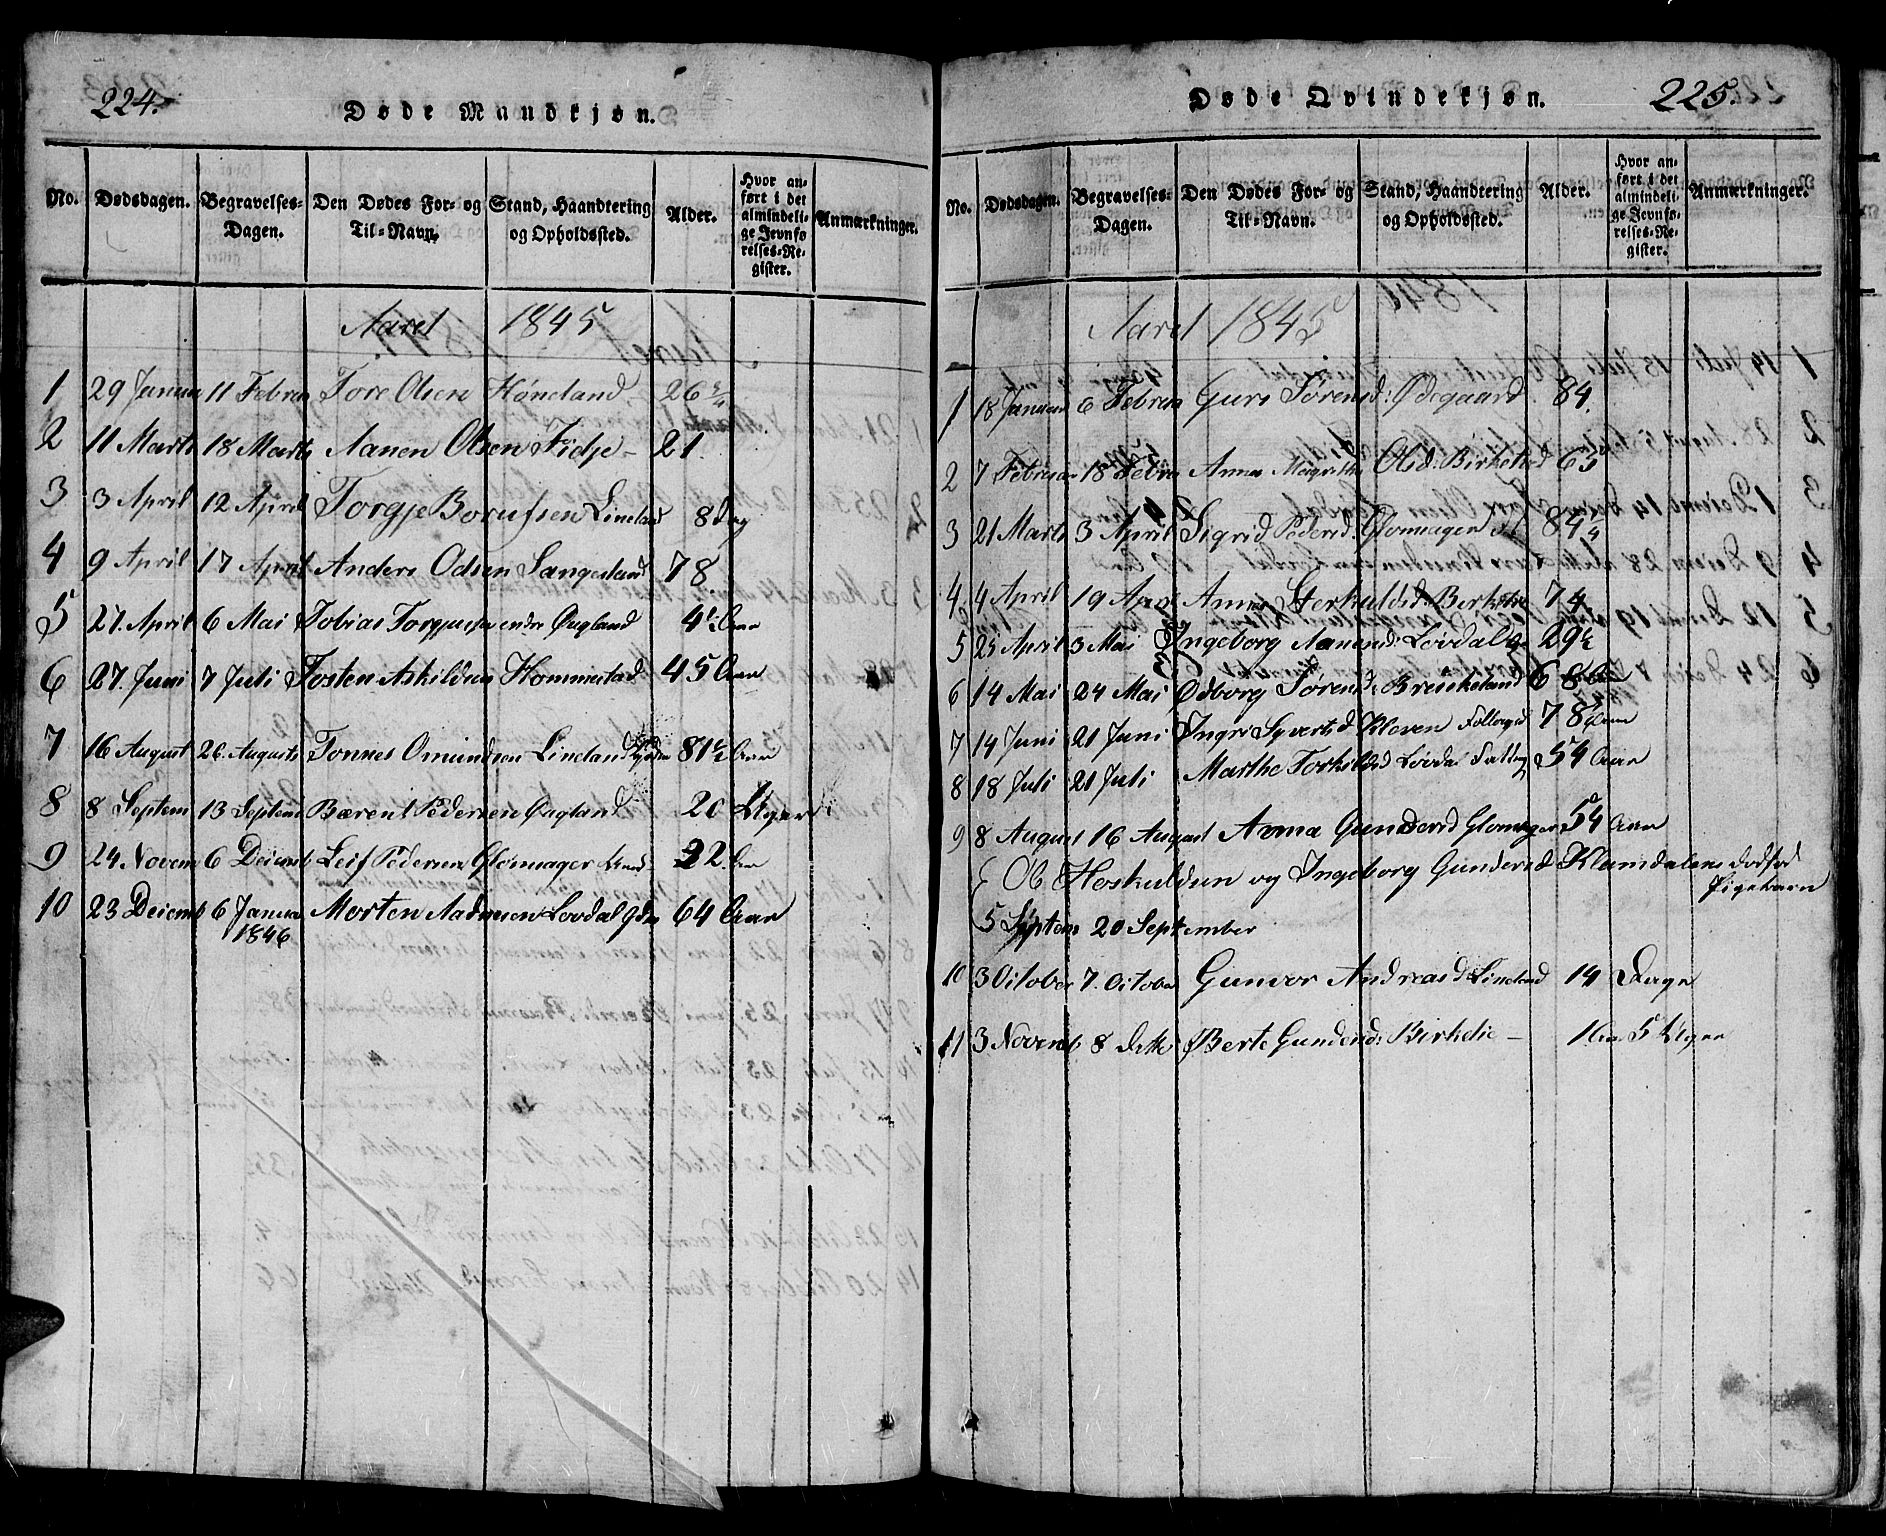 224.
Døde Mandkjøn.
No. Dødsdagen. Begravelses-Dagen. Den Dødes For- og Til-Navn. Stand, Haandtering og Opholdssted. Alder. Hvor anført i det almindelige Jevnførelses-Register. Anmærkninger.
Aaret 1845
1 29 Januar 11 Februar Tore Olsen Høneland 26
2 11 Marts 18 Marts Aanen Olsen Fidje – 21.
3 3 April 12 April Torgje Lineland 8 Dag
4 9 April 17 April Anders Odsen Langeland 78.
5 27. April 6 Mai Tobias Øugland 4½ Aar
6 27. Juni 7 Juli Tosten Askildsen Hommestad 45 Aar
7 16 August 26. Augusts Tønnes Omundsen Lineland 81½ Aar
8 8 Septem 13 Septem Bærent Pedersen Øugland 20 Uger
9 24 Novem 6 Decemb Leif Pedersen Glomsager 22 Aar
10 23 Decemb 6 Janua 1846 Morten Aadnesen Lovdal 64 Aar
225.
Døde Qvindekjøn.
No. Dødsdagen. Begravelses-Dagen. Den Dødes For- og Til-Navn. Stand, Haandtering og Opholdssted. Alder. Hvor anført i det almindelige Jevnførelses-Register. Anmærkninger.
Aaret 1845
1 18 Januar 6 Februar Guri Sørensd: Ødegaard 84.
2 7 Februar 18 Febra Anna Magrethe Olsd: Birketed 63
3 21 Marts 3 April Sigrid Pedersd: Glomsager 84¼
4 4 April 19 April Anna Terkildsd: Birketed 74
5 25 April 3 Mai Ingeborg Aanensd: Lovdal 29½
6 14 Mai 24 Mai Odborg Sørensd: Breikeland 68 Aar
7 14 Juni 21 Juni Ingri Syvertsd Kleven 78 Aar
8 18 Juli 21 Juli Marthe Torkilsd Lovdal 54 Aar
9 8 August 16 August Anna Gundersd Glomsager 54 Aar
Ob Hoskuldsen og Ingeborg Gundersd Klumdalens dødfød Pigebarn
5 Septem 20 September
10 3 October 7. October Gunvor Andreasd Lineland 14 Dage
11 3 Novemb 8 Berte Gundersd: Birketie – 1 Aar 5 Uger